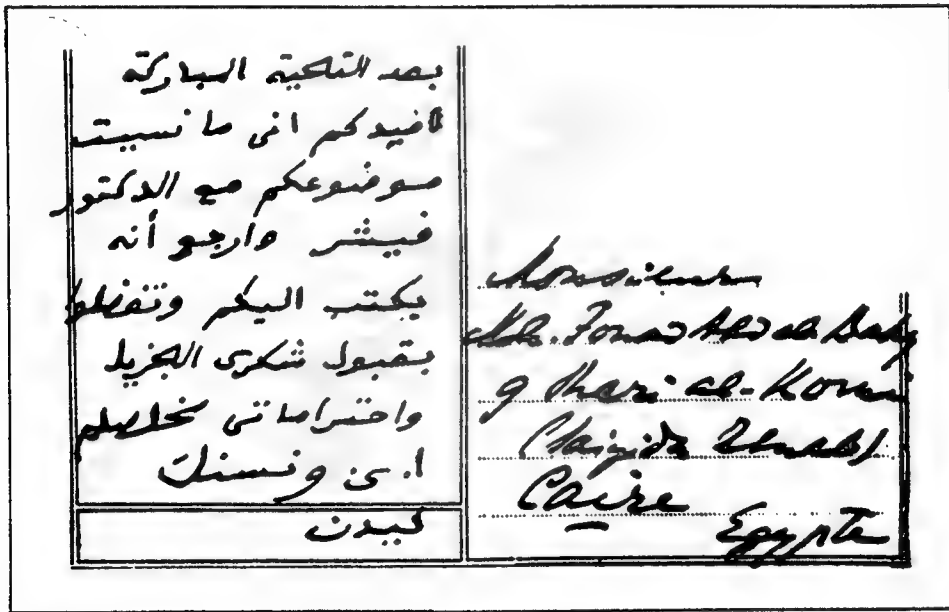 بعد التحية المباركة
افيدكم انى ما نسيت
موضوعكم مع الدكتور
فيشر وارجو أنه
يكتب اليكم وتفضلوا
بقبول شكرى الجزيل
واحتراماتى مخلصكم
ا. ى ونسنك
ليدن
Monsieur
Moh. Fouad Abd al-Baky
9 Shari al-Komi
(Saiyida Zenab)
Caire
Egypte